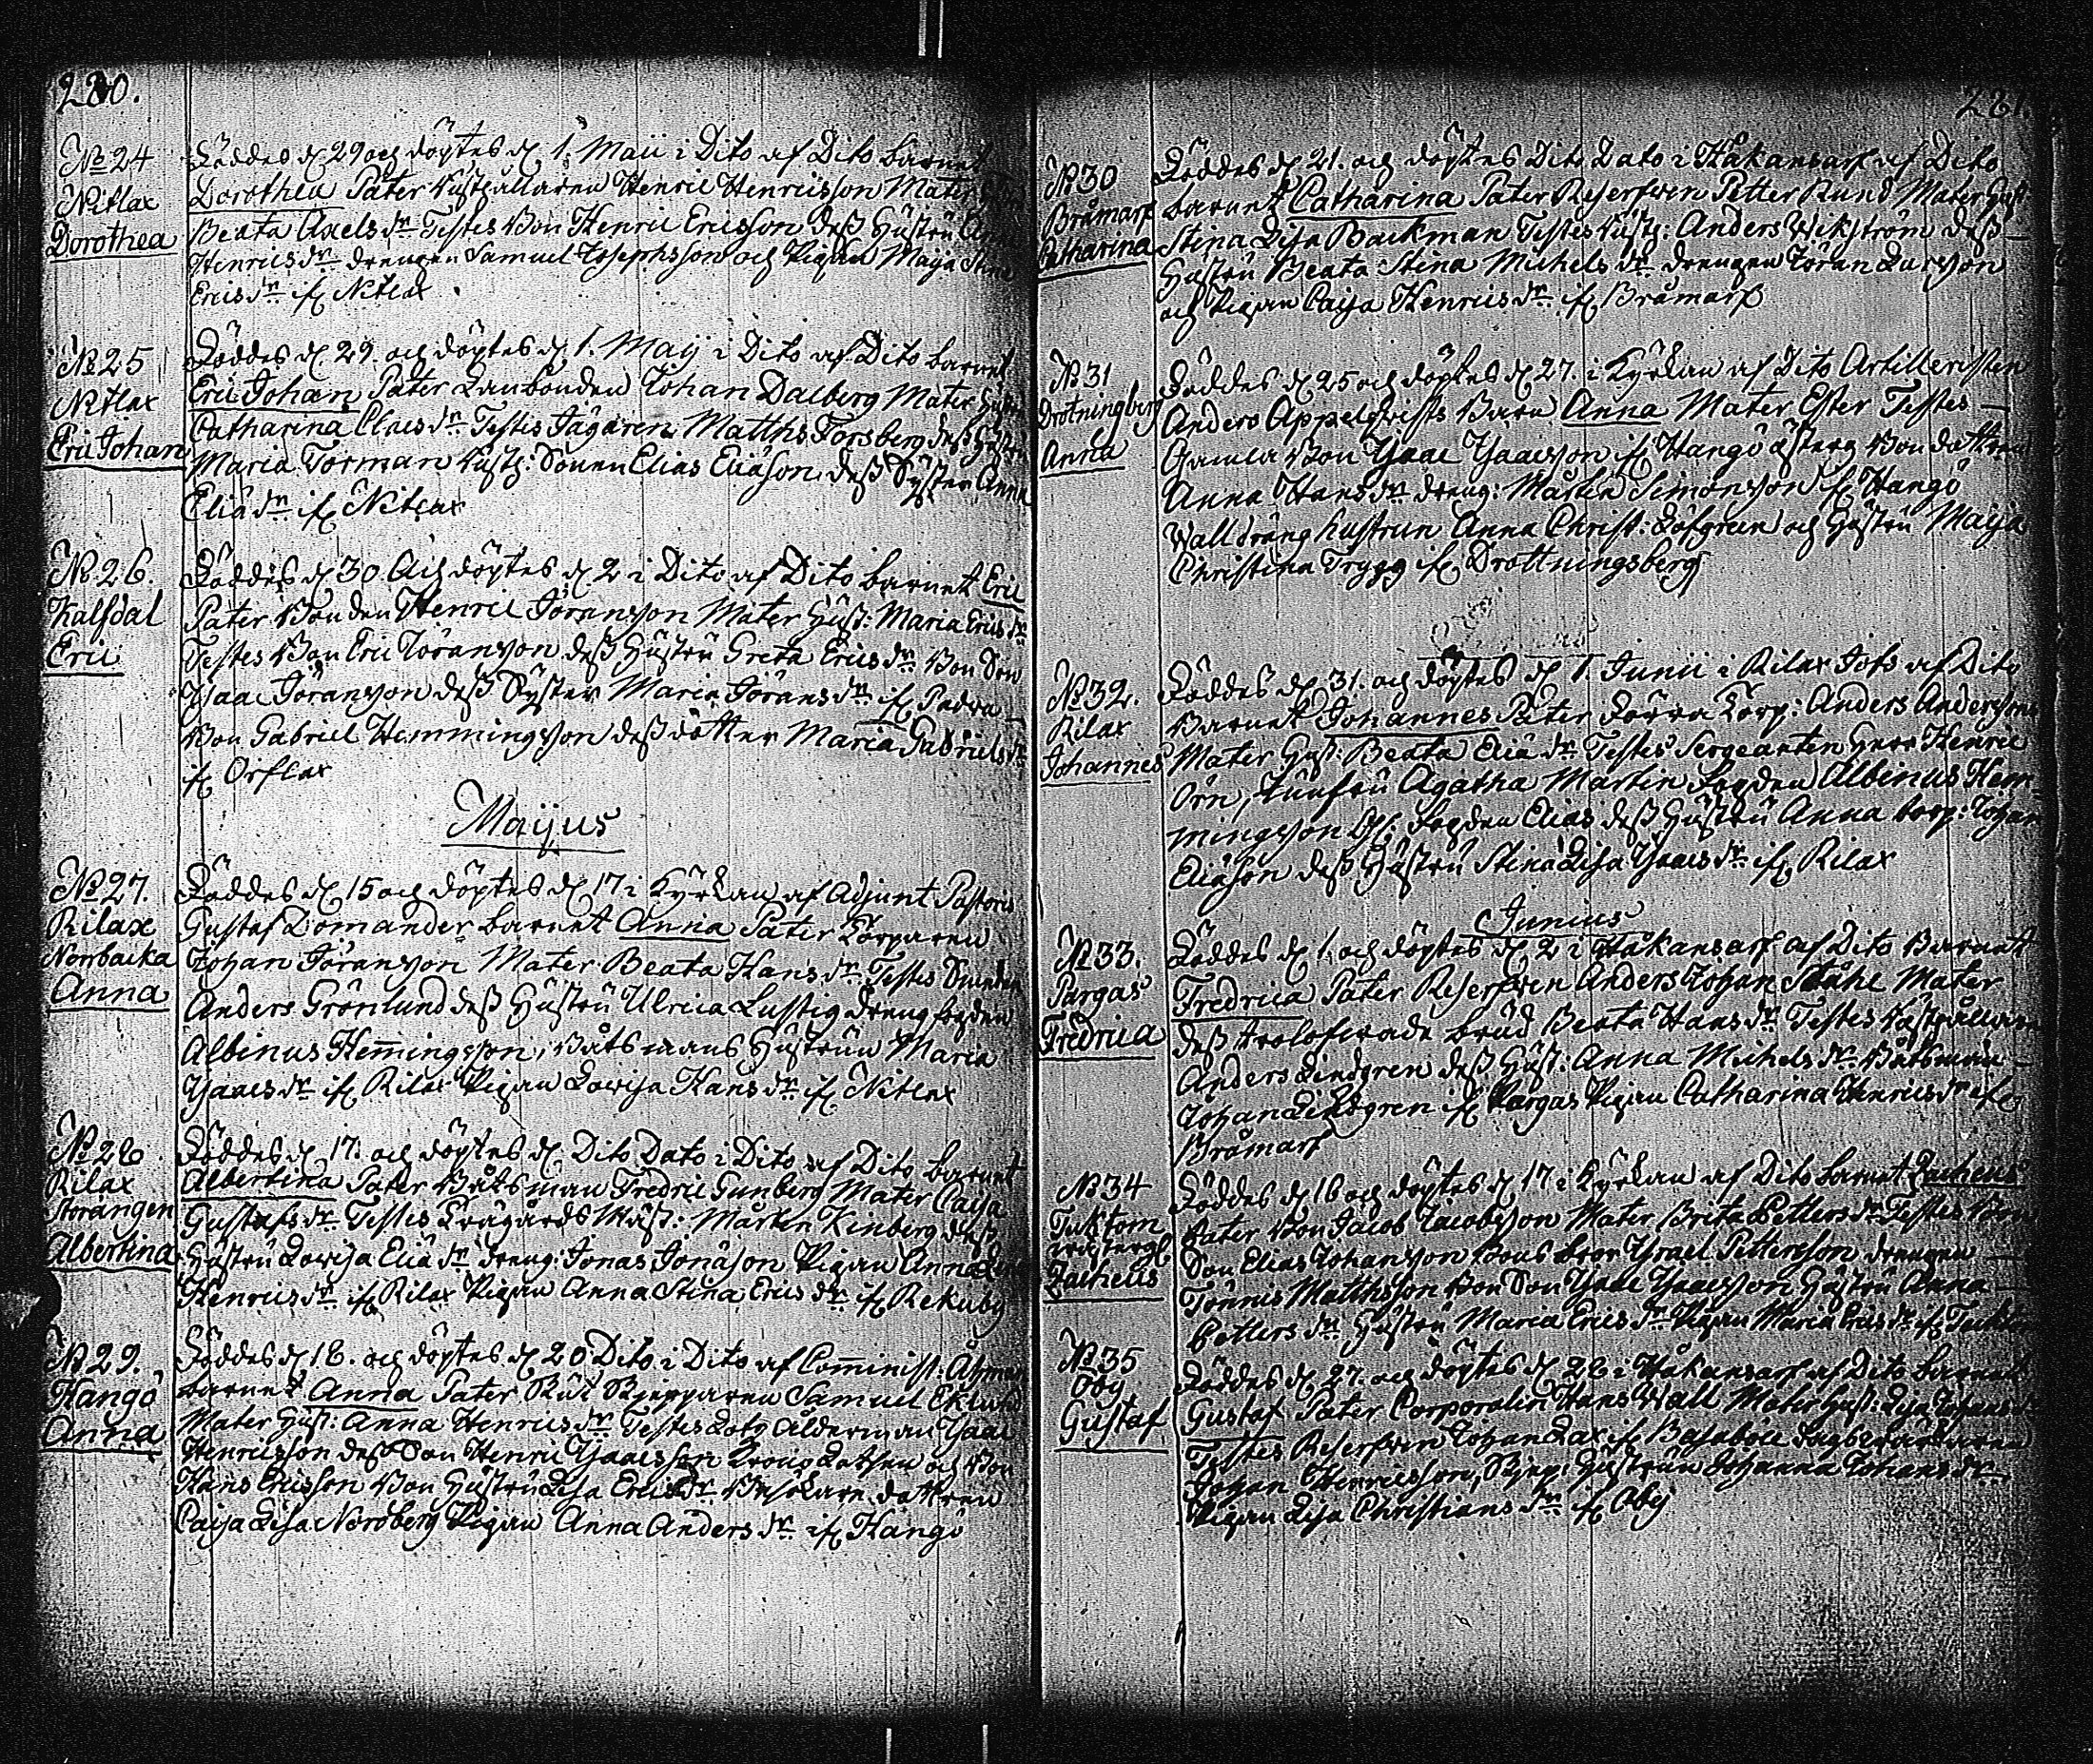 280.
No 24
Nitlax
Dorothea
Föddes d. 29 och döptes d. 1. Maii i Dito af Dito barnet
Dorothea Pater Henric Henricsson Mater
Beata Axels dr Testes Bon Henric Ericsson dess Hustru
Henrics dr drengen Samuel Josephsson och Pigan Maja Stina
Erics dr if. Nitlax
No 25
Nitlax
Eric Johan
Föddes d. 29. och döptes d. 1. Maij i Dito af Dito barnet
Eric Johan Pater Landbonden Johan Dalberg Mater Hustru
Catharina Claes dr Testis Jägaren Matths Forsberg dess Hustru
Maria Torman Sonen Elias Eliäson dess Syster Anna
Eliä dr if. Nitlax
No 26.
Kalfdal
Eric
Föddes d. 30 Och döptes d. 2 i Dito af Dito barnet Eric
Pater Bonden Henric Jöransson Mater Hust: Maria Erics dr
Testes Bon Eric Jöransson dess Hustru Greta Erics dr Bon Son
Isaac Jöransson dess Syster Maria Jörans dr if. Padva
Bon Gabriel Hemmingsson dess dotter Maria Gabriels dr
if. Orslax
Maijus
No 27.
Rilax
Norrbacka
Anna
Föddes d. 15 och döptes d. 17 i Kyrkan af Adjunt Pastoris
Gustaf Domander barnet Anna Pater Torparen
Johan Jöransson Mater Beata Hans dr Testes Smeden
Anders Grönlund dess Hustru Ulrica Lustig dreng fogden
Albinus Hemingsson, Båtsmans Hustrun Maria
Isaacs dr if. Rilax Pigan Lovisa Hans dr if. Nitlax
No 28
Rilax
Storängen
Albertina
Föddes d. 17. och döptes d. Dito Dato i Dito af Dito barnet
Albertina Pater Båtsman Fredric Gunberg Mater Caisa
Gustafs dr Testes Trägårds Mäst: Mårten Kinberg dess
Hustru Lovisa Eliä dr dreng: Jonas Jonäson Pigan Anna
Henrics dr if. Rilax Pigan Anna Stina Erics dr if. Rekuby
No 29.
Hangö
Anna
Föddes d. 18. och döptes d. 20 Dito i Dito af Comminist: Åhman
barnet Anna Pater Skepparen Samuel Eklund
Mater Hust: Anna Henrics dr Testes Lots ålderman Isaac
Henricsson dess Son Henric Isaacsson Krono Lotsen och Bon
Hans Ericsson Bon Hustru Lisa Erics dr dottren
Caisa Lisa Nordberg Pigan Anna Anders dr if. Hangö
281.
No 30
Bråmarf
Catharina
Föddes d. 21. och döptes Dito Dato i Håkansarf af Dito
barnet Catharina Pater Reserfven Petter Rund Mater Hust
Stina Lisa Backman Testes Anders Wikström dess
Hustru Beata Stina Michels dr drengen Jöran Larsson
och Pigan Caisa Henrics dr if. Bråmarf
No 31
Drotningberg
Anna
Föddes d. 25 och döptes d. 27. i Kyrkan af Dito Artilleristen
Anders Appelqvists Barn Anna Mater Ester Testes
Gamla Bon Isaac Isaacsson if. Hangö Österg. Bon dottren
Anna Hans dr dreng: Mårten Simonsson if. Hangö
Wall dräng hustrun Anna Christ: Löfgren och Hustru Maija
Christina Trygg if. Drottningsberg
No 32.
Rilax
Johannes
Föddes d. 31. och döptes d. 1. Junii i Rilax Hofs af Dito
Barnet Johannes Pater Torp: Anders Andersson
Mater Hust: Beata Eliä dr Testes Sergeanten Herr Henric
Örn, Junfru Agatha Martin Fogden Albinus Hem-
mingsson Fogden Elias dess Hustru Anna torp: Johan
Eliäson dess Hustru Stina Lisa Isaacs dr if. Rilax
Junius
No 33.
Pargas
Fredrica
Föddes d. 1. och döptes d. 2 i Håkansarf af Dito Barnet
Fredrica Pater Reserfven Anders Johan Ståhl Mater
dess trolofvade brud Beata Hans dr Testes
Anders Lindgren dess Hust: Anna Michels dr Båtsman
Johan Lindgren if. Pargas Pigan Catharina Henrics dr if.
Bråmarf
No 34
Tuktom
Zacheus
Föddes d. 16 och döptes d. 17 i Kyrkan af Dito barnet Zacheus
Pater Bon Jacob Jacobsson Mater Brita Petters dr Testes Bon
Son Elias Johansson Bons bror Israel Pettersson drengen
Tönnis Matthsson Bon Son Isaac Isaacsson Hustru Anna
Petters dr Hustru Maria Erics dr Pigan Maria Erics dr if.
No 35
Öby
Gustaf
Föddes d. 27. och döptes d. 28 i Håkansarf af Dito barnet
Gustaf Pater Corporalen Hans Wall Mater Hust: Lisa Johans dr
Testes Reserfven Johan Lax if. Basaböle
Johan Henricsson, Hustrun Johanna Johans dr
Pigan Lisa Christians dr if. Öbij